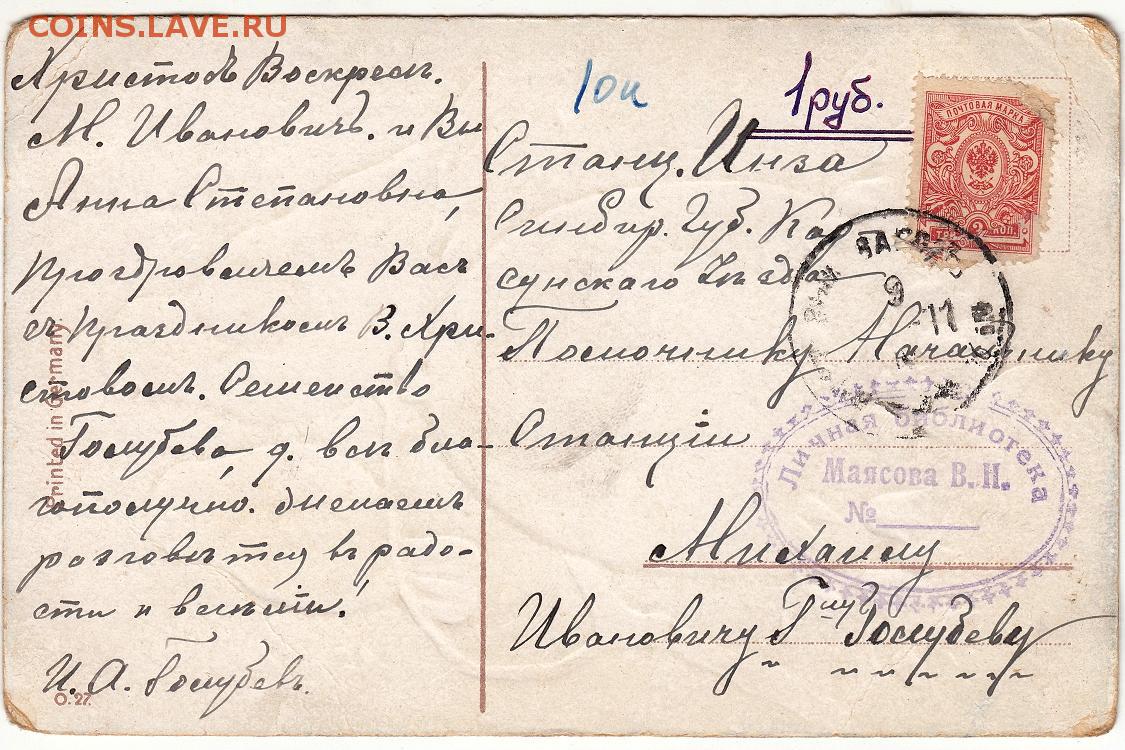 COINS.LAVE.RU
Христосъ Воскресъ.
М. Ивановичъ. и Вы
Анна Степановна,
Проздровляемъ Васъ
съ праздникомъ В. Хри-
стовомъ. Семейство
Голубева, д. всѣ бла-
гополучно.
розговѣтся въ радо-
сти и веселіи.
И. А. Голубевъ.
О. 27.
Printed in Germany.
10к
1руб.
ПОЧТОВАЯ МАРКА
ТРИ 3 КОП.
Станц. Инза
Симбир. Губ. Ка
сунскаго Уѣзда
Помочнику Начальнику
Станціи
Михаилу
Ивановичу Гну Голубеву
9
11
Личная библиотека
Маясова В. Н.
№